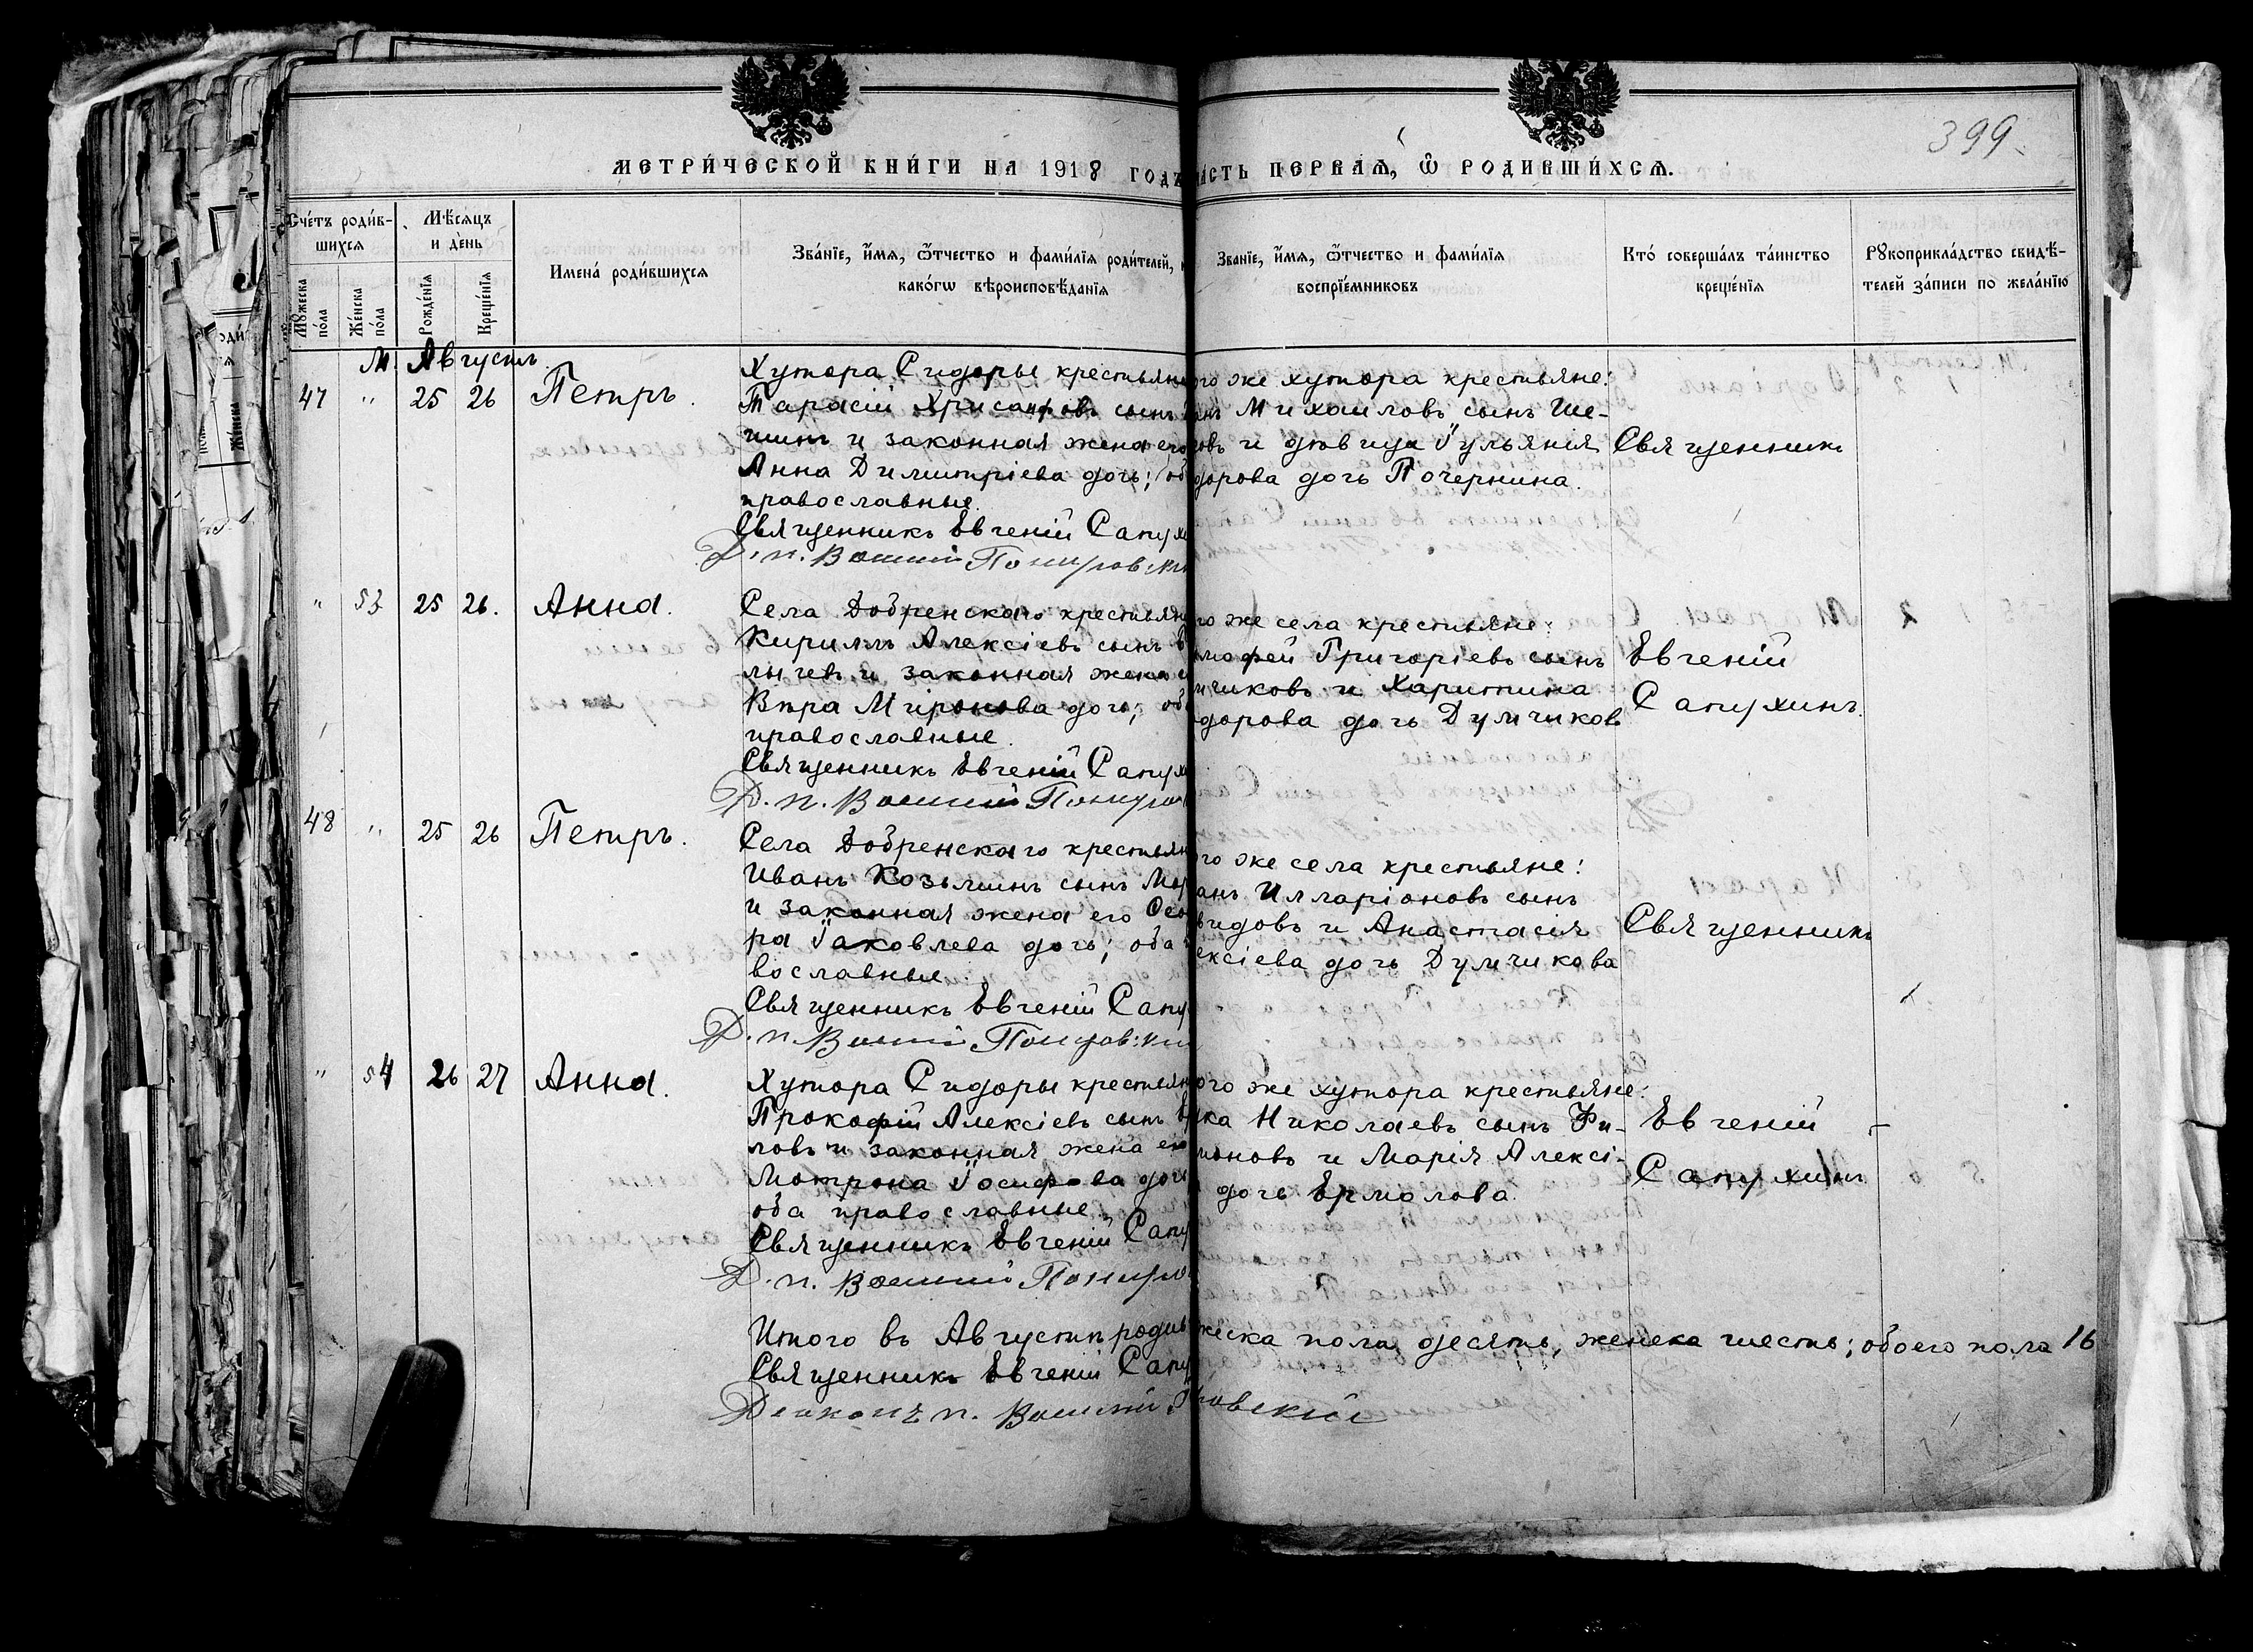 399
МЕТРИ́ЧЕСКОЙ КНИ́ГИ НА 1918 ГОДЪ
ЧАСТЬ ПЕРВАѦ, Ѽ РОДИВШИ́ХСѦ.
Сче́тъ роди́в-
шихся
Мѹжеска по́ла
Же́нска по́ла
Мѣ́сяцъ
и де́нь
Рожде́нїя
Креще́нїя
Имена́ роди́вшихся
Зва́нїе, и́мѧ, ѻ҆́тчество и фами́лїя роди́телей,
како́гѡ вѣроисповѣ́данїя
Зва́нїе, и́мѧ, ѻ҆́тчество и фами́лїя
воспрїе́мниковъ
Кто́ соверша́лъ та́инство
креще́нїя
Рꙋкоприкла́дство свидѣ́-
телей за́писи по жела́нїю
М. Августъ
47 " 25 26 Петръ.
Хутора Сидоры крестьян
Тарасій Хрисанфовъ сынъ
шинъ и законная жена его
Анна Димитріева дочь; об
православные.
Священникъ Евгеній Сапух
Д. п.
го же хутора крестьяне:
анъ Михаиловъ сынъ Ше-
овъ и дѣвица Іульянія
дорова дочь Почернина.
Священникъ
" 53 25 26. Анна.
Села Добренскаго крестьян
Кириллъ Алексіевъ сынъ
лычевъ и законная жена
Вѣра Миронова дочь; об
православные.
Священникъ Евгеній Сапух
Д. п.
го же села крестьяне:
мофей Григоріевъ сынъ
мчиковъ и Харитина
дорова дочь Думчиков
Евгеній
Сапухинъ.
48 " 25 26 Петръ.
Села Добренскаго крестьян
Иванъ Козьминъ сынъ Мор
и законная жена его Ѳео
ра Іаковлева дочь; оба
вославные.
Священникъ Евгеній Сапу
Д. п.
го же села крестьяне:
анъ Илларіоновъ сынъ
видовъ и Анастасія
ексіева дочь Думчикова
Священникъ
" 54 26 27 Анна.
Хутора Сидоры крестьян
Прокофій Алексіевъ сынъ
ловъ и законная жена его
Матрона Іосифова дочь
оба православные.
Священникъ Евгеній Сапу
Д. п.
ого же хутора крестьяне:
ка Николаевъ сынъ Фи-
моновъ и Марія Алексі-
дочь Ермолова.
Евгеній
Сапухинъ
Итого въ Августѣ родив
жеска пола десять, женска шесть; обоего пола 16
Священникъ Евгеній Сапу
Діаконъ п.
ровскій